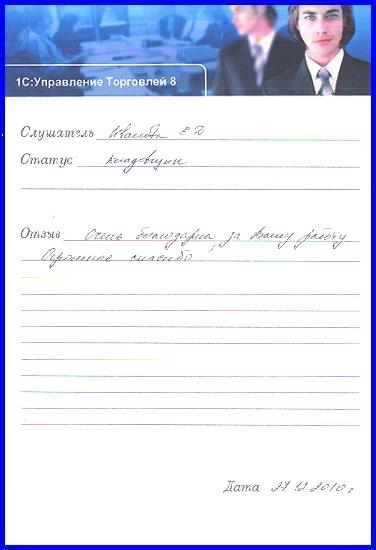 1С:Управление Торговлей 8
Слушатель Иванова Е Д
Статус Кладовщик
Отзыв Очень благодарна за Вашу работу
Огромное спасибо!
Дата 27.12.2010 г